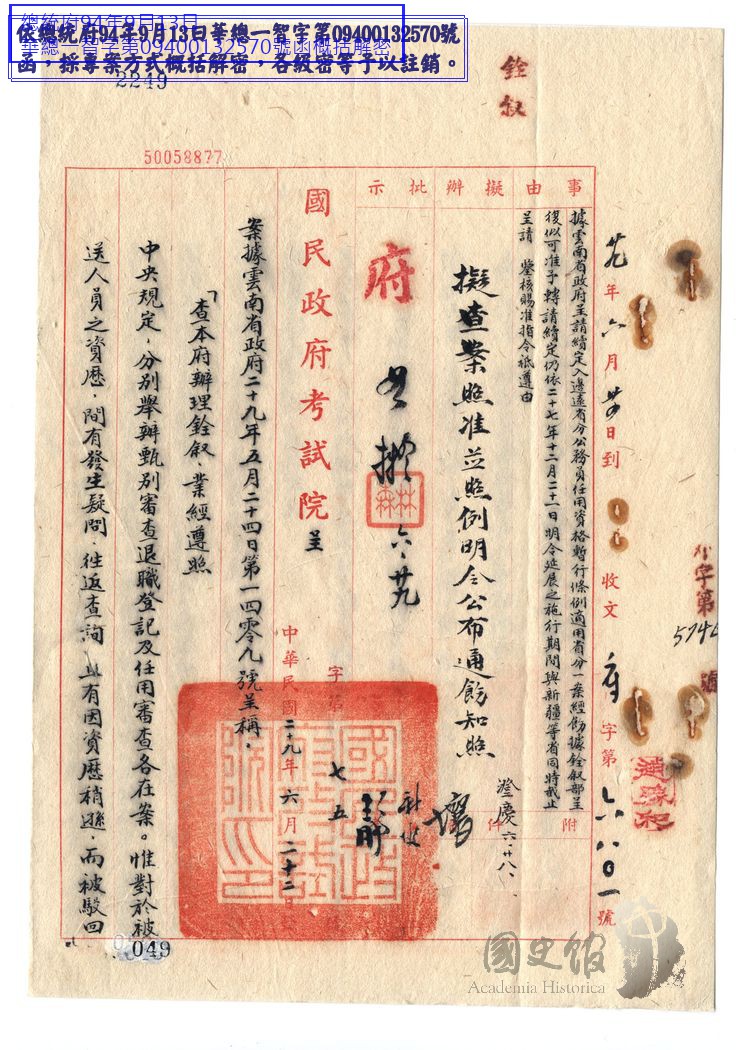 總統府94年9月13日
華總一智字第09400132570號函概括解密
依總統府94年9月13日華總一智字第09400132570號
函，採專案方式概括解密，各級密等予以註銷。
2249
銓叙
50058877
廿九年六月廿四日到
收文府字第六八〇一號
字第
號
事由
擬辦
批示
據雲南省政府呈請續定入邊遠省分公務員任用資格暫行條例適用省分一案經飭據銓叙部呈
復似可准予轉請續定仍依二十七年十二月二十一日明令延展之施行期間與新疆等省同時截止
呈請 鑒核賜准指令祇遵由
附件
擬查案照准並照例明令公布通飭知照
澄慶 六、廿八、
府
林森
六、廿九
國民政府考試院呈
字第
七五
號
中華民國二十九年六月二十二日
案據雲南省政府二十九年五月二十四日第一四零九號呈稱、
「查本府辦理銓叙、業經遵照
中央規定，分別舉辦甄別審查退職登記及任用審查各在案。惟對於被
送人員之資歷，間有發生疑問、往返查詢、且有因資歷稍遜、而被駁回
049
國史館
Academia Historica